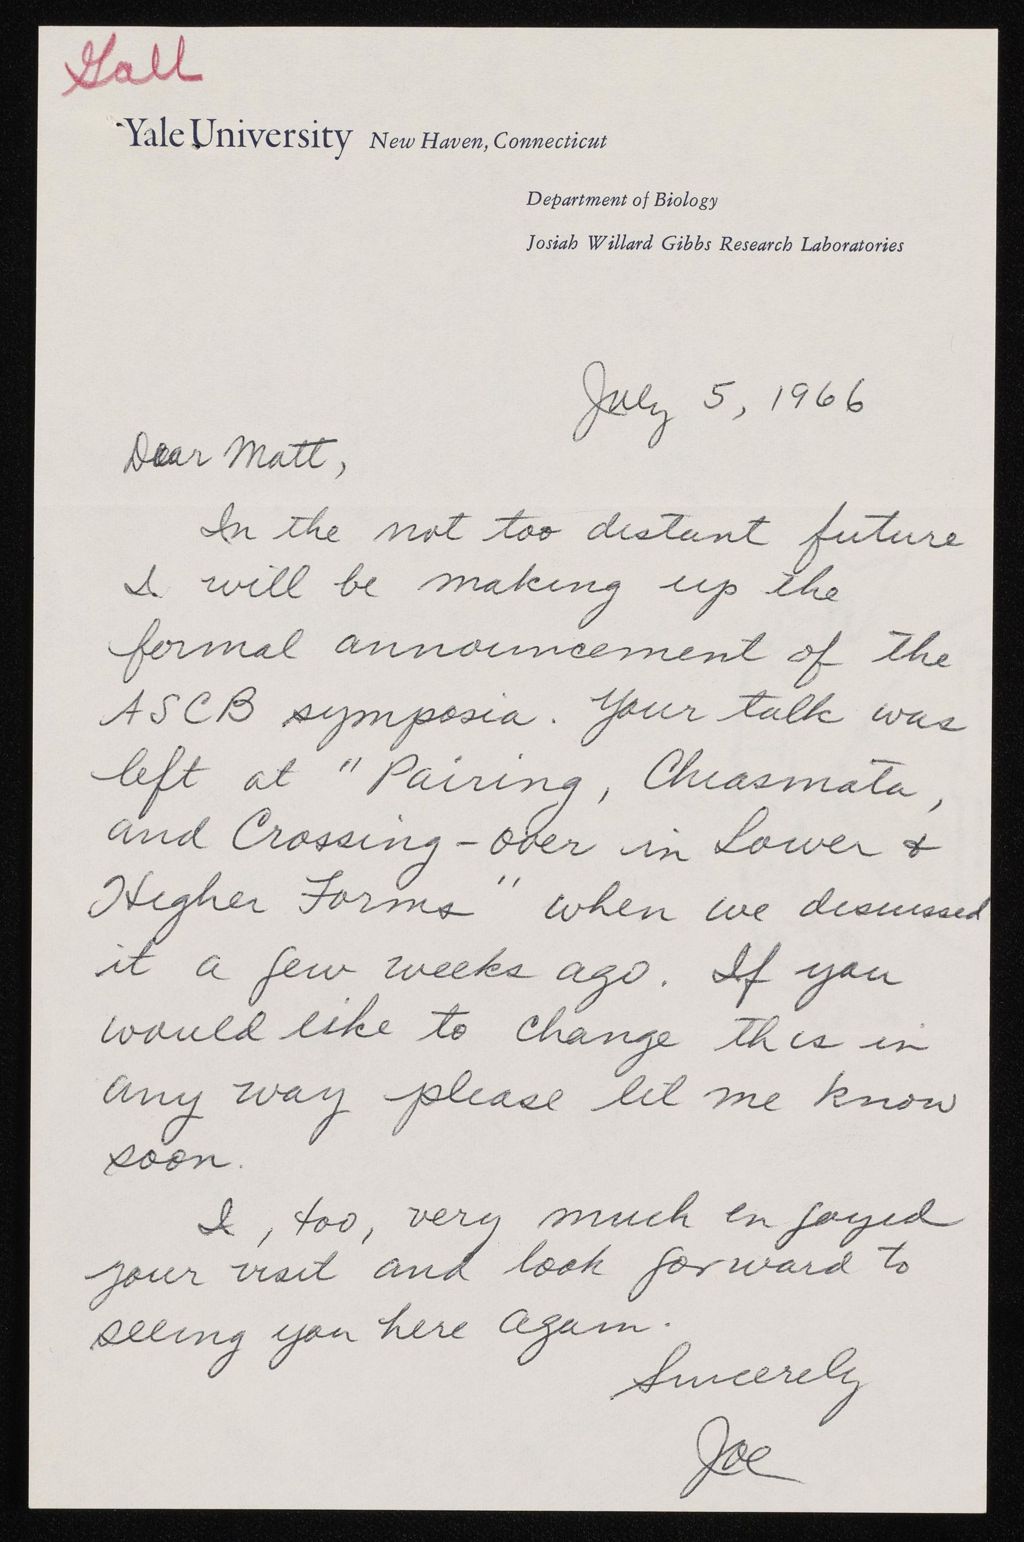 Gall
Yale University New Haven, Connecticut
Department of Biology
Josiah Willard Gibbs Research Laboratories
July 5, 1966
Dear Matt,
In the not too distant future
I will be making up the
formal announcement of the
ASCB symposia. Your talk was
left at "Pairing, Chiasmata,
and Crossing-over in Lower &
Higher Forms" when we discussed
it a few weeks ago. If you
would like to change this in
any way please let me know
soon.
I, too, very much enjoyed
your visit and look forward to
seeing you here again.
Sincerely
Joe